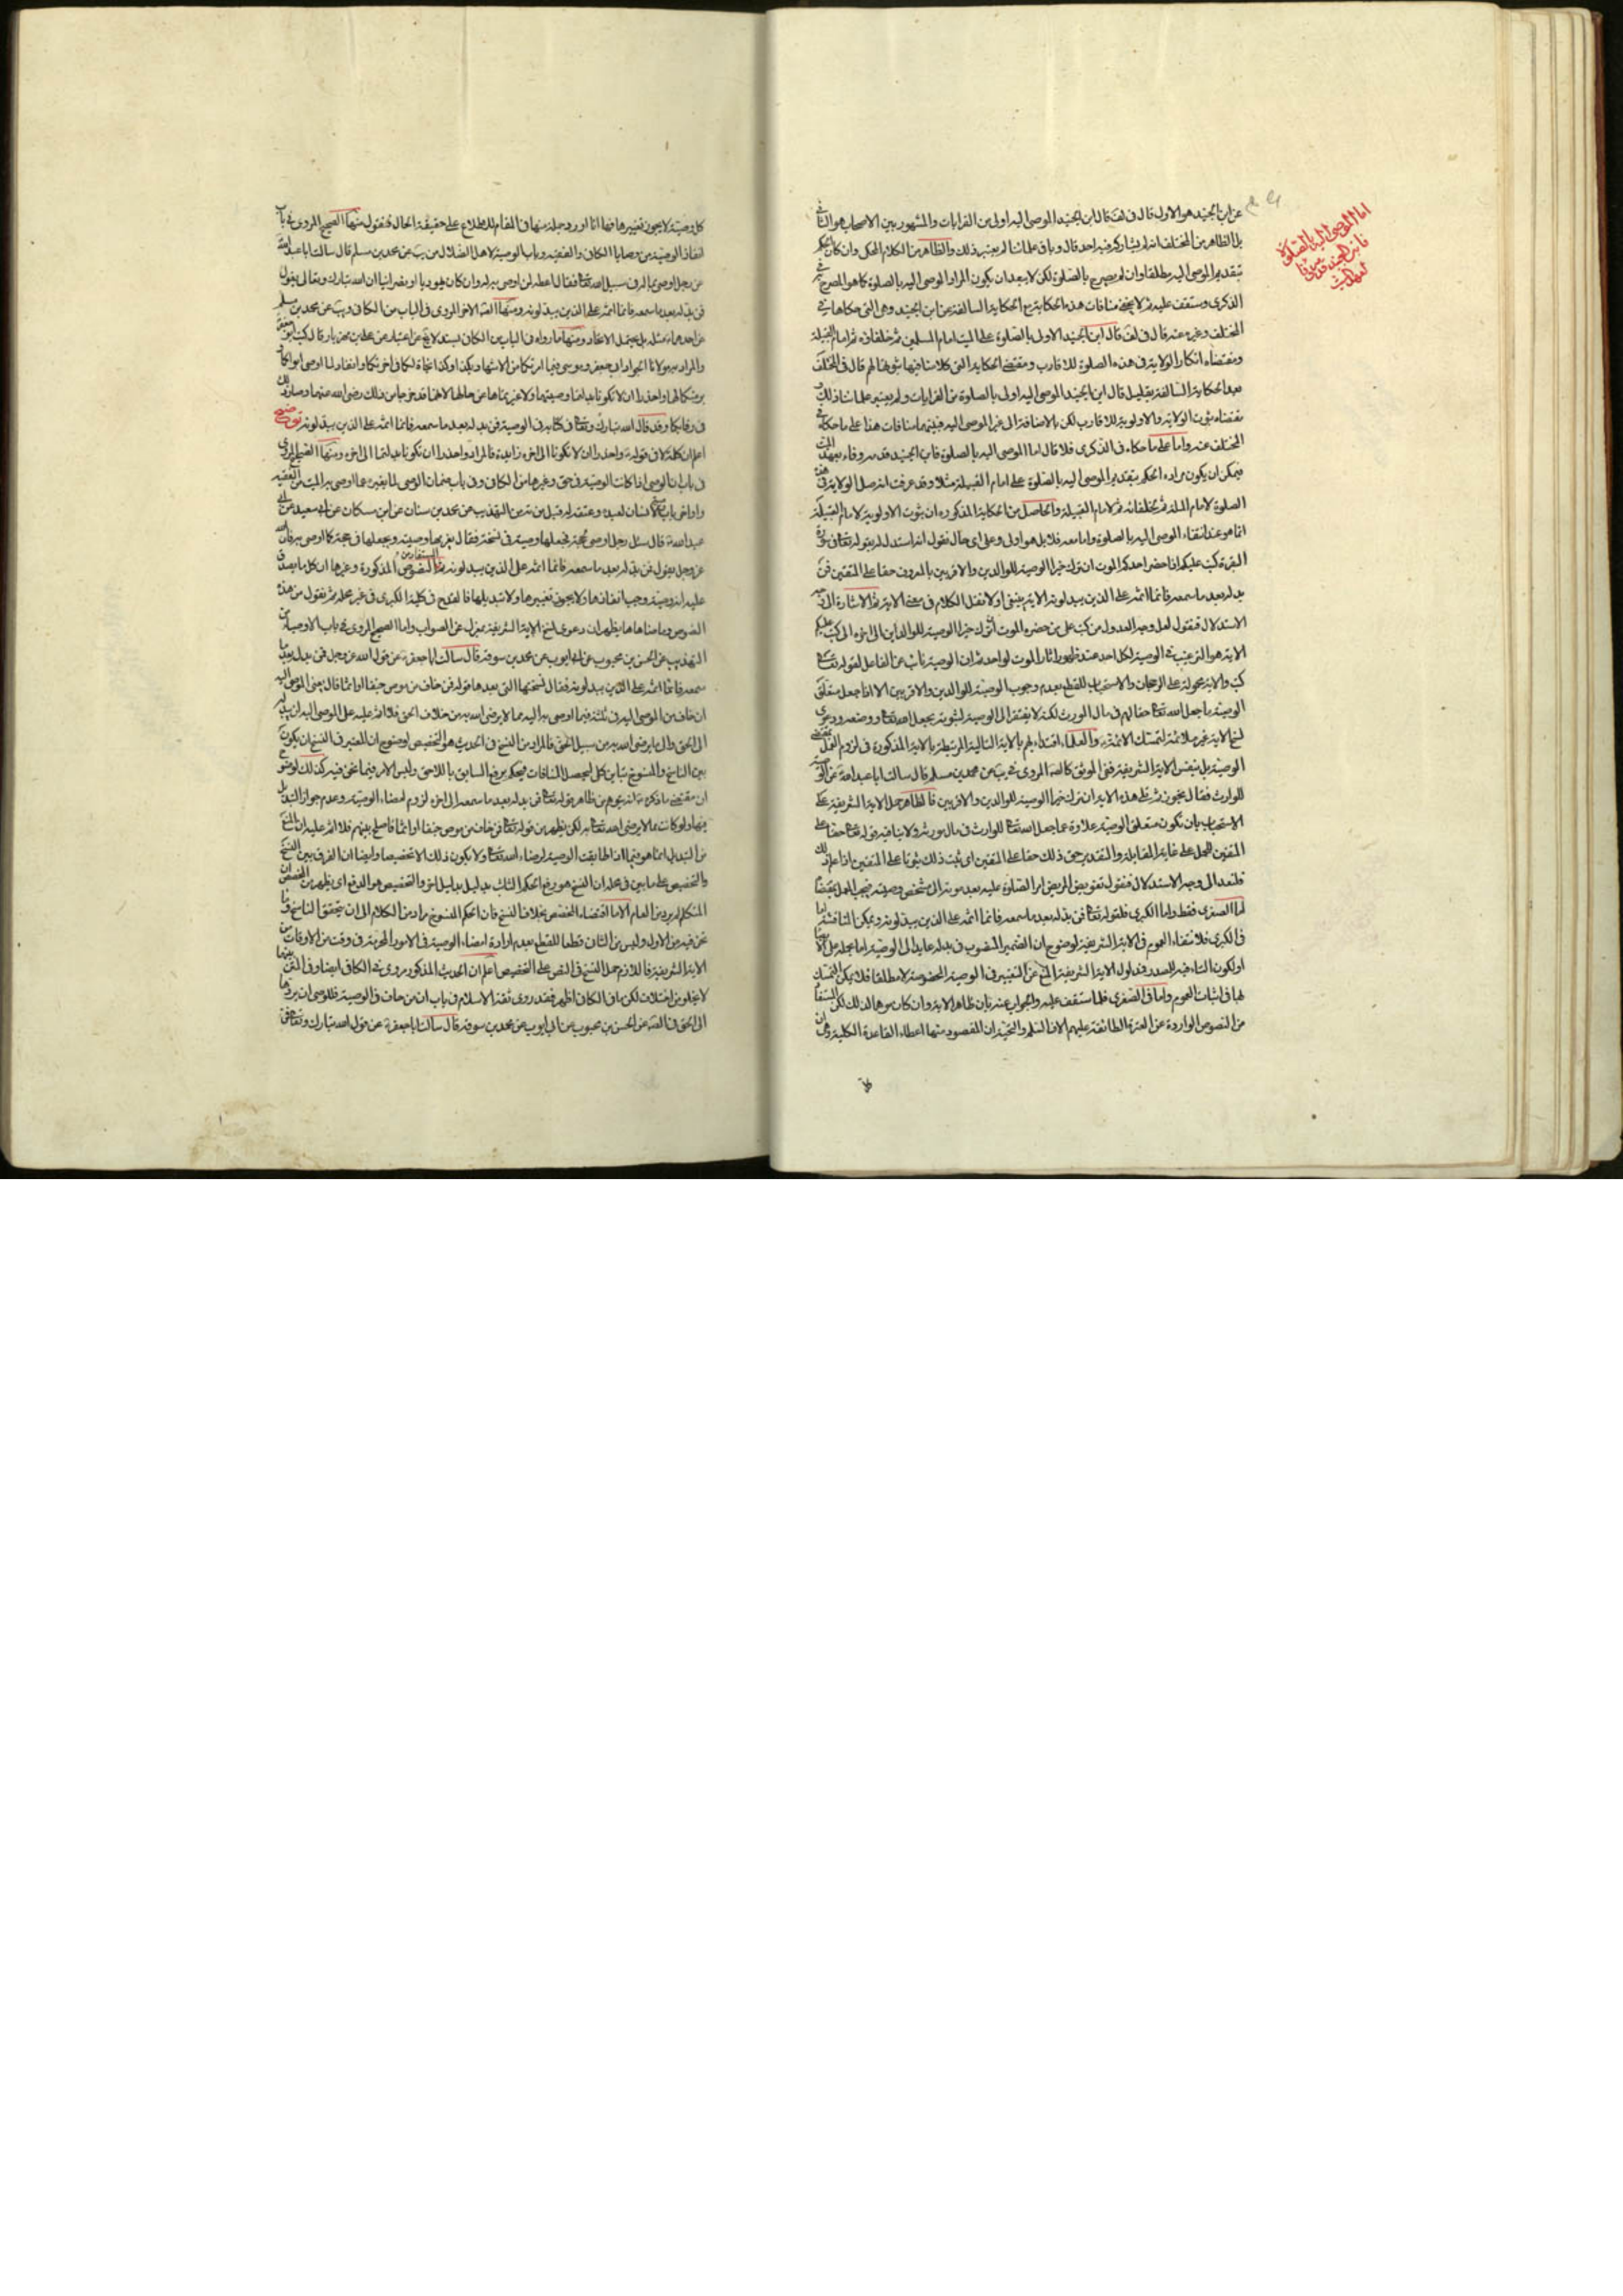 عن ابن الجنيد هو الاول قال في لف قال ابن الجنيد الموصى اليه اولى من القرابات والمشهور بين الاصحاب هو الثاني
بل الظاهر من المختلف انه لم يشاركه فيه احد قال وباقي علمائنا لم يعتبر ذلك والظاهر من الكلام المحكي وان كان الحكم
بتقديم الموصى اليه مطلقا وان لم يصرح بالصلوة لكن لا يبعد ان يكون المراد الموصى اليه بالصلوة كما هو المصرح في
الذكرى وستقف عليه ثم لا يخفى منافات هذه الحكاية مع الحكاية السالفة عن ابن الجنيد وهي التي حكاها في
المختلف وغيره عنه قال في لف قال ابن الجنيد الاولى بالصلوة على الميت امام المسلمين ثم خلفاؤه ثم امام القبيلة
ومقتضاه انكار الولاية في هذه الصلوة للاقارب ومقتضى الحكاية التي كلامنا فيها ثبوتها لهم قال في المختلف
بعد الحكاية السالفة بقليل قال ابن الجنيد الموصى اليه اولى بالصلوة من القرابات ولم يعتبر علماؤنا ذلك
مقتضاه ثبوت الولاية والاولوية للاقارب لكن بالاضافة الى غير الموصى اليه فبينهما منافات هذا على ما حكاه في
المختلف عنه واما على ما حكاه في الذكرى فلا قال اما الموصى اليه بالصلوة فابن الجنيد قدمه وفاء بعهد الميت
فيمكن ان يكون مراده الحكم بتقديم الموصى اليه بالصلوة على امام القبيلة مثلا وقد عرفت انه جعل الولاية في هذه
الصلوة لامام الملة ثم لخلفائه ثم لامام القبيلة والحاصل من الحكاية المذكورة ان ثبوت الاولوية لامام القبيلة
انما هو عند انتفاء الموصى اليه بالصلوة واما معه فلا بل هو اولى وعلى اي حال نقول انه استدل له بقوله تعالى في سورة
البقرة كتب عليكم اذا حضر احدكم الموت ان ترك خيرا الوصية للوالدين والاقربين بالمعروف حقا على المتقين فمن
بدله بعد ما سمعه فانما اثمه على الذين يبدلونه الاية ينبغي اولا نقل الكلام في معنى الاية ثم الاشارة الى وجه
الاستدلال فنقول لعل وجه العدول من كتب على من حضره الموت اترك خيرا الوصية للوالدين الى اخره الى كتب عليكم
الاية هو الترغيب في الوصية لكل احد عند ظهور اثار الموت لواحد ثم ان الوصية نائب عن الفاعل لقوله تعالى
كتب والاية محمولة على الرجحان والاستحباب للقطع بعدم وجوب الوصية للوالدين والاقربين الا اذا جعل متعلق
الوصية ما جعل الله تعالى حقا لهم في مال المورث لكنه لا يفتقر الى الوصية لثبوته بجعل الله تعالى ووضعه ودعوى
نسخ الاية غير ملائمة لتمسك الائمة والعلماء اقتداء بهم بالاية التالية المرتبطة بالاية المذكورة في لزوم العمل بمقتضى
الوصية بل بنفس الاية الشريفة ففي الموثق كالصحيح المروي في يب عن محمد بن مسلم قال سالت ابا عبد الله عن الوصية
للوارث فقال يجوز ثم تلى هذه الاية ان ترك خيرا الوصية للوالدين والاقربين فالظاهر حمل الاية الشريفة على
الاستحباب بان تكون متعلق الوصية علاوة عما جعل الله تعالى للوارث في مال مورثه ولا ينافيه قوله تعالى حقا على
المتقين للحمل على غاية المقابلة والتقدير حق ذلك حقا على المتقين اي ثبت ذلك ثبوتا على المتقين اذا علم ذلك
فلنعد الى وجه الاستدلال فنقول تفويض المريض امر الصلوة عليه بعد موته الى شخص وصية فيجب العمل بمقتضاها
اما الصغرى فقط واما الكبرى فلقوله تعالى فمن بدله بعد ما سمعه فانما اثمه على الذين يبدلونه ويمكن المناقشة اما
في الكبرى فلانتفاء العموم في الاية الشريفة لوضوح ان الضمير المنصوب في بدله عايد الى الوصية
او لكون التاء فيه للصدر فمدلول الاية الشريفة المنع عن التغيير في الوصية المخصوصة لا مطلقا فلا يمكن التمسك
بها في اثبات العموم واما في الصغرى فلما ستقف عليه والجواب عنه بان ظاهر الاية وان كان موهما لذلك لكن المستفاد
من النصوص الواردة عن العترة الطاهرة عليهم الاف السلام والتحية ان المقصود منها اعطاء القاعدة الكلية وهي ان
اما الموصى اليه بالصلوة
فابن الجنيد قدمه وفاء
لعهد الميت
كل وصية لا يجوز تغييرها فها انا اورد جملة منها في المقام للاطلاع على حقيقة الحال فنقول منها الصحيح المروي في باب
انفاذ الوصية من وصايا الكافي والفقيه وباب الوصية لاهل الضلال من يب عن محمد بن مسلم قال سالت ابا عبد الله
عن رجل اوصى بماله في سبيل الله تعالى فقال اعطه لمن اوصى به له وان كان يهوديا او نصرانيا ان الله تبارك وتعالى يقول
فمن بدله بعد ما سمعه فانما اثمه على الذين يبدلونه ومنها الصحيح الاخر المروي في الباب من الكافي ويب عن محمد بن مسلم
عن احدهما مثله بل يحتمل الاتحاد ومنها ما رواه في الباب من الكافي بسند لا يخ عن اعتبار عن علي بن مهزيار قال كتب ابو جعفر
والمراد به مولانا الجواد الى جعفر وموسى وفيما امرتكما من الاشهاد بكذا وكذا نجاة لكما في اخرتكما وانفاذ لما اوصى ابواكما
وبر منكما لهما واحذرا ان لا تكونا بدلتما وصيتهما ولا غيرتماها عن حالها لانهما قد خرجا من ذلك رضي الله عنهما وصار ذلك
في رقابكما وقد قال الله تبارك وتعالى في كتابه في الوصية فمن بدله بعد ما سمعه فانما اثمه على الذين يبدلونه توضيح
اعلم ان كلمة لا في قوله واحذرا ان لا تكونا الى اخره زايدة فالمراد واحذرا ان تكونا بدلتما الى اخره ومنها الصحيح المروي
في باب ان الوصي اذا كانت الوصية في حق وغيرها من الكافي وفي باب ضمان الوصي لما يغيره عما اوصى به الميت من الفقيه
عبد الله قال سئل رجل اوصى بحجة فجعلها وصيه في نسمة فقال يغرمها وصيه ويجعلها في حجة كما اوصى به فان الله
عز وجل يقول فمن بدله بعد ما سمعه فانما اثمه على الذين يبدلونه ثم المستفاد من النصوص المذكورة وغيرها ان كل ما يصدق
عليه انه وصية وجب انفاذها ولا يجوز تغييرها ولا تبديلها فالقدح في كلية الكبرى في غير محله ثم نقول من هذه
النصوص وما ضاهاها يظهر ان دعوى نسخ الاية الشريفة بمعزل عن الصواب واما الصحيح المروي في باب الاوصياء من
التهذيب عن الحسن بن محبوب عن ابي ايوب عن محمد بن سوقة قال سالت ابا جعفر عن قول الله عز وجل فمن بدله بعد ما
سمعه فانما اثمه على الذين يبدلونه فقال نسختها التي بعدها قوله فمن خاف من موص جنفا او اثما قال يعني الموصى اليه
ان خاف من الموصي اليه في ثلثه فيما اوصى به اليه مما لا يرضى الله به من خلاف الحق فلا اثم عليه على الموصى اليه ان يبدله
الى الحق والى ما يرضى الله به من سبيل الحق فالمراد من النسخ في الحديث هو التخصيص لوضوح ان المعتبر في النسخ ان يكون
بين الناسخ والمنسوخ تباين كلي ليحصل المنافات فيحكم برفع السابق باللاحق وليس الامر فيما نحن فيه كذلك لوضوح
ان مقتضى ما ذكره انه يتوهم من ظاهر قوله تعالى فمن بدله بعد ما سمعه الى اخره لزوم امضاء الوصية وعدم جواز التبديل
فيها ولو كانت مما لا يرضى الله تعالى به لكن يظهر من قوله تعالى فمن خاف من موص جنفا او اثما فاصلح بينهم فلا اثم عليه ان المنع
من التبديل انما هو فيما اذا طابقت الوصية لرضاء الله تعالى ولا يكون ذلك الا تخصيصا وايضا ان الفرق بين النسخ
والتخصيص على ما بين في محله ان النسخ هو رفع الحكم الثابت بدليل بدليل اخر والتخصيص هو الدفع اي يظهر من المخصص ان
المتكلم لم يرد من العام الا ما اقتضاه المخصص بخلاف النسخ فان الحكم المنسوخ مراد من الكلام الى ان يتحقق الناسخ وما
نحن فيه من الاول وليس من الثاني قطعا للقطع بعدم ارادة امضاء الوصية في الامور المحرمة في وقت من الاوقات من
الاية الشريفة فاللازم حمل النسخ في النص على التخصيص اعلم ان الحديث المذكور مروي في الكافي ايضا وفي المتن بينهما
لا يخلو من اختلاف لكن ما في الكافي اظهر فقد روى ثقة الاسلام في باب ان من حاف في الوصية فللوصي ان يردها
الى الحق في الصحيح عن الحسن بن محبوب عن ابي ايوب عن محمد بن سوقة قال سالت ابا جعفر عن قول الله تبارك وتعالى فمن